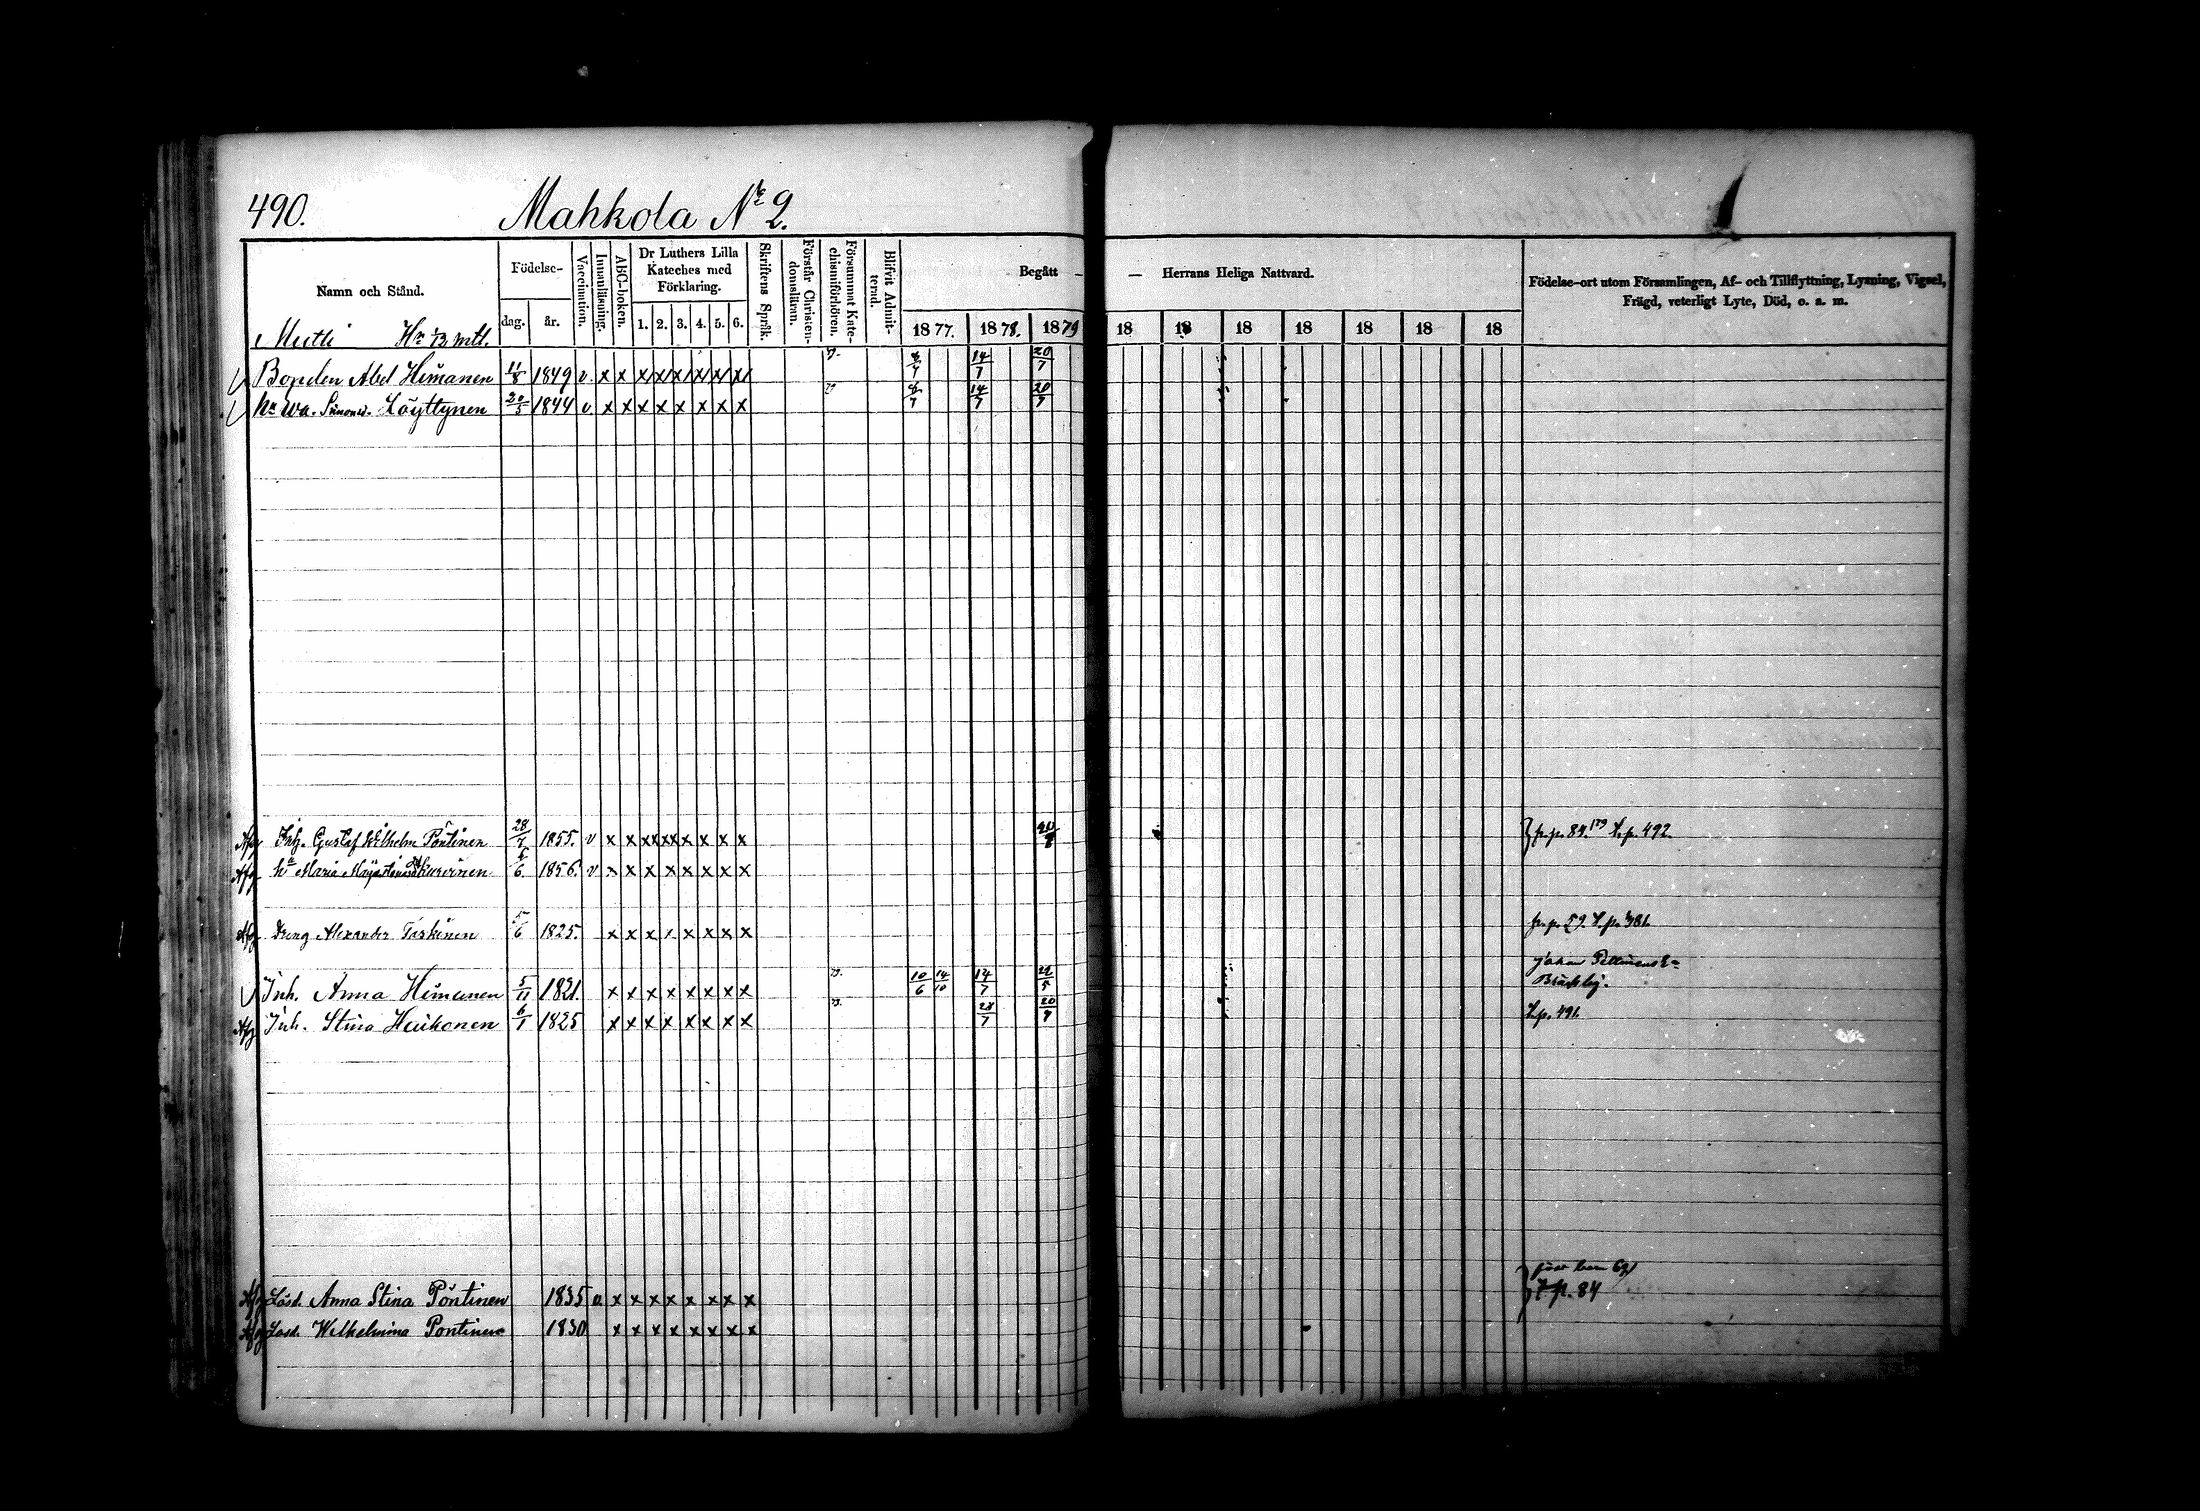 490. Mahkola No 2.
Namn och Stånd.
Födelse-
dag. år.
Vaccination.
Innanläsning.
ABC-boken.
Dr Luthers Lilla
Kateches med
Förklaring.
1. 2. 3. 4. 5. 6.
Skriftens Språk.
Förstår Christen-
domsläran.
Försummat Kate-
chismiförhören.
Blifvit Admit-
terad.
Begått — — Herrans Heliga Nattvard.
1877. 1878. 1879 18 18 18 18 18 18 18
Födelse-ort utom Församlingen, Af- och Tillflyttning, Lysning, Vigsel,
Frägd, veterligt Lyte, Död, o. s. m.
Mutli 1/3 mtl.
Bonden Abel Himanen 11/8 1849 v. x x x x x x x x 14/7 20/7
hu Wa. Simonsd. Löyttynen 20/5 1844 v x x x x x x x x 14/7 20/7
Afg Inh. Gustaf Wilhelm Pöntinen 28/7 1855. v x x x x x x x x fr. p. 84. 179 t. p. 492.
Afg hu Maria 6. 1856. v x x x x x x x x
Afg Dreng Alexander Taskinen 5/6 1825. x x x x x x x x fr. p. 59. t. p. 381.
Inh. Anna Himanen 5/11 1821. x x x x x x x x 10/6 14/10 14/7 Johan
Afg Inh. Stina Heikonen 6/1 1825 x x x x x x x x 28/7 20/7 t. p. 491.
Afg Lösd. Anna Stina Pöntinen 1835 x x x x x x x x
t. p. 84
Afg Lösd. Wilhelmina Pontinen 1830 x x x x x x x x